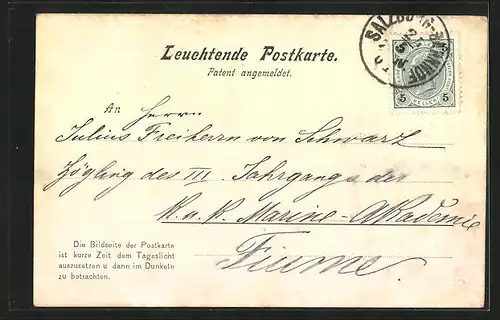 Leuchtende Postkarte.
Patent angemeldet.
SALZBURG-BAHNHOF
5 HELLER 5
An Herrn
Julius Freiherrn von Schwarz
Zögling des III. Jahrgangs der
k. u. k. Marine-Akademie
Fiume
Die Bildseite der Postkarte
ist kurze Zeit dem Tageslicht
auszusetzen u dann im Dunkeln
zu betrachten.